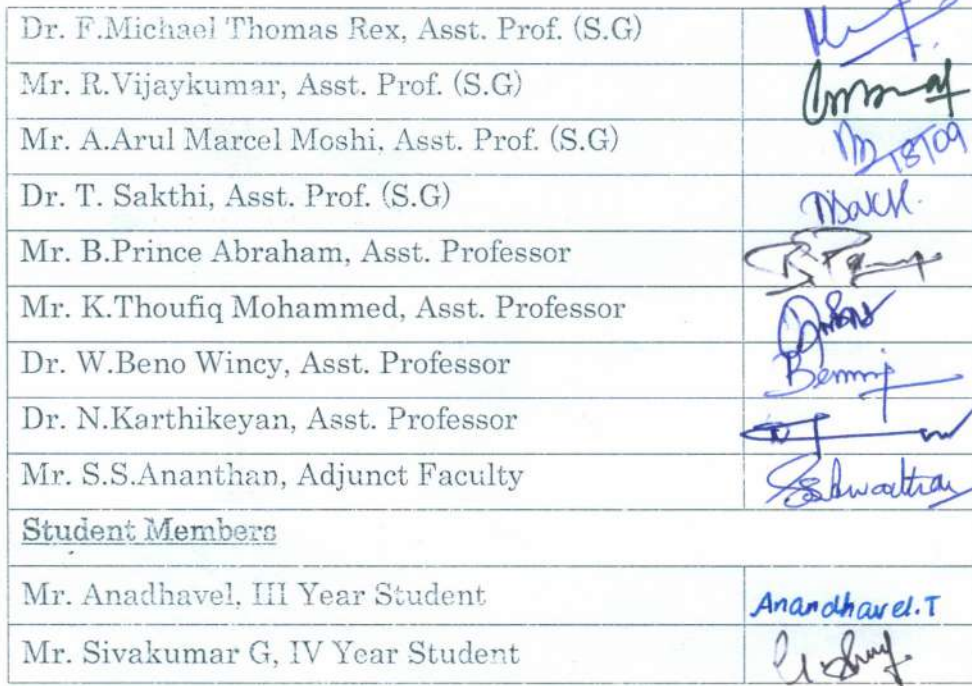 Dr. F.Michael Thomas Rex, Asst. Prof. (S.G)
Mr. R.Vijaykumar, Asst. Prof. (S.G)
Mr. A.Arul Marcel Moshi, Asst. Prof. (S.G)
18/09
Dr. T. Sakthi, Asst. Prof. (S.G)
Mr. B.Prince Abraham, Asst. Professor
Mr. K.Thoufiq Mohammed, Asst. Professor
Dr. W.Beno Wincy, Asst. Professor
Dr. N.Karthikeyan, Asst. Professor
Mr. S.S.Ananthan, Adjunct Faculty
Student Members
Mr. Anadhavel, III Year Student Anandhavel.T
Mr. Sivakumar G, IV Year Student